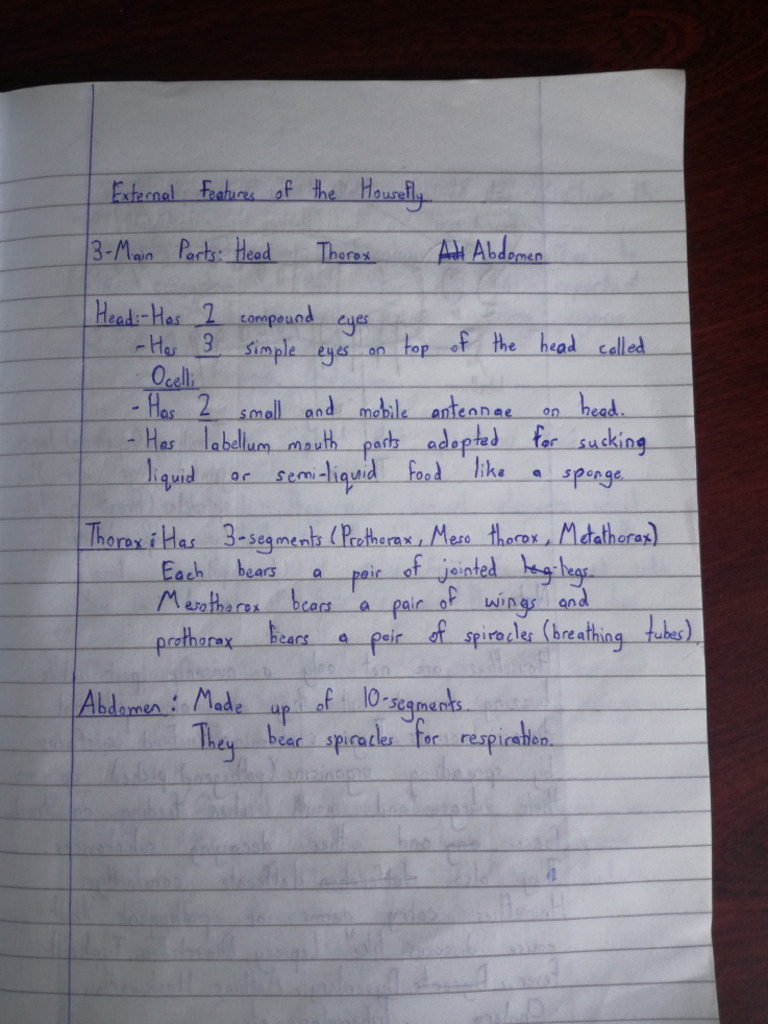 External Features of the Housefly
3-Main Parts: Head Thorax Abdomen
Head:-Has 2 compound eyes
-Has 3 simple eyes on top of the head called
Ocelli
- Has 2 small and mobile antennae on head.
- Has labellum mouth parts adopted for sucking
liquid or semi-liquid food like a sponge.
Thorax: Has 3-segments (Prothorax, Meso thorax, Metathorax)
Each bears a pair of jointed legs.
Mesothorax bears a pair of wings and
prothorax bears a pair of spiracles (breathing tubes).
Abdomen: Made up of 10-segments.
They bear spiracles for respiration.